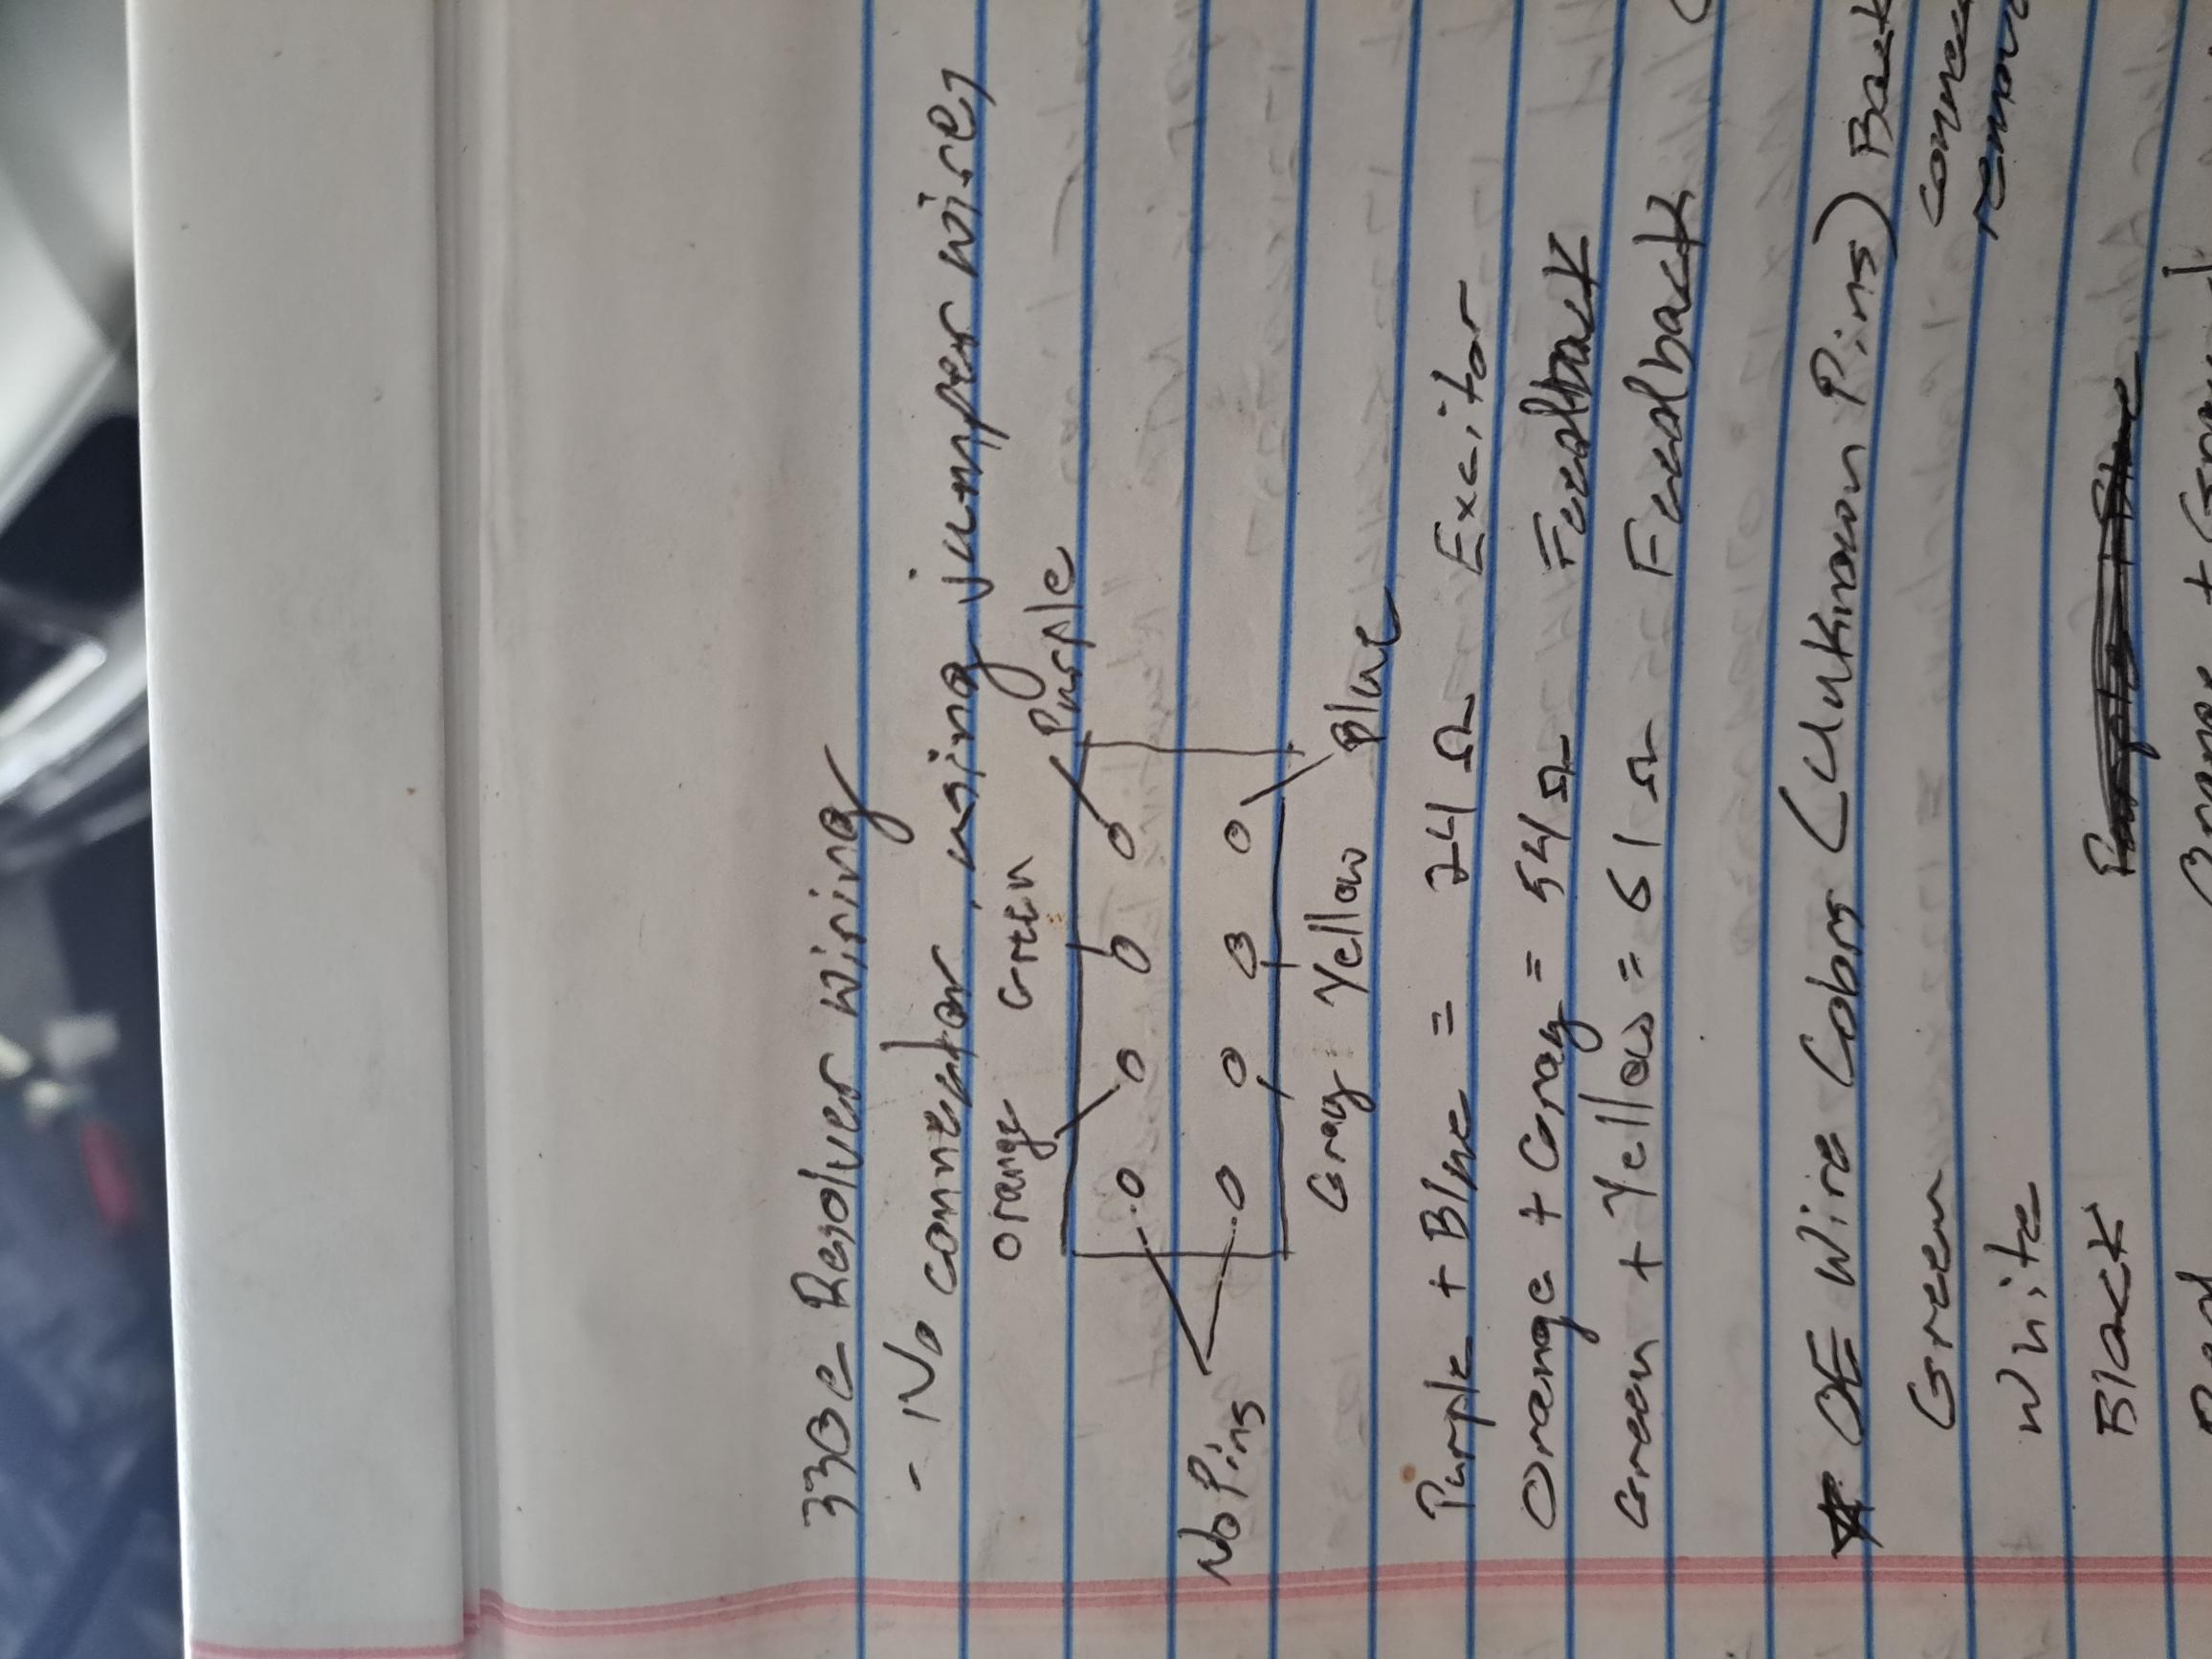 330e Resolver wiring
- No connector, using jumper wires
Orange Green Purple
No Pins
Gray Yellow Blue
Purple + Blue = 24 Ω Excitor
Orange + Gray = 54 Ω Feedback
Green + Yellow = 61 Ω Feedback
* OE Wire Colors (Unknown Pins) Back
Green
White
Black
Orange +